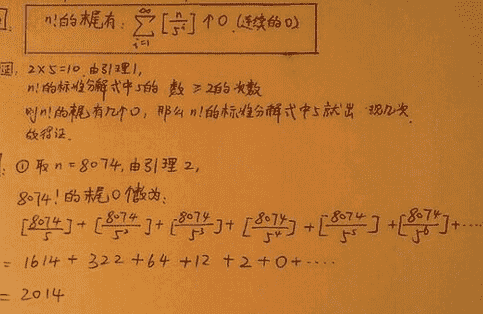 n!的末尾有: \sum_{i=1}^{\infty} [\frac{n}{5^i}] 个0 (连续的0)
证: 2×5=10, 由引理1,
n!的标准分解式中5的 数 ≥ 2的次数
则n!的末尾有几个0, 那么n!的标准分解式中5就出现几次
故得证.
: ① 取n=8074, 由引理2,
8074! 的末尾0个数为:
[\frac{8074}{5}] + [\frac{8074}{5^2}] + [\frac{8074}{5^3}] + [\frac{8074}{5^4}] + [\frac{8074}{5^5}] + [\frac{8074}{5^6}] + ....
= 1614 + 322 + 64 + 12 + 2 + 0 + ....
= 2014